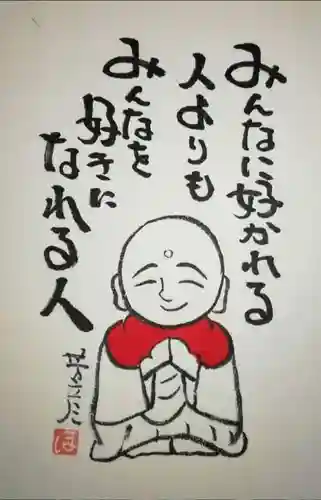 みんなに好かれる
人よりも
みんなを
好きに
なれる人
ほ